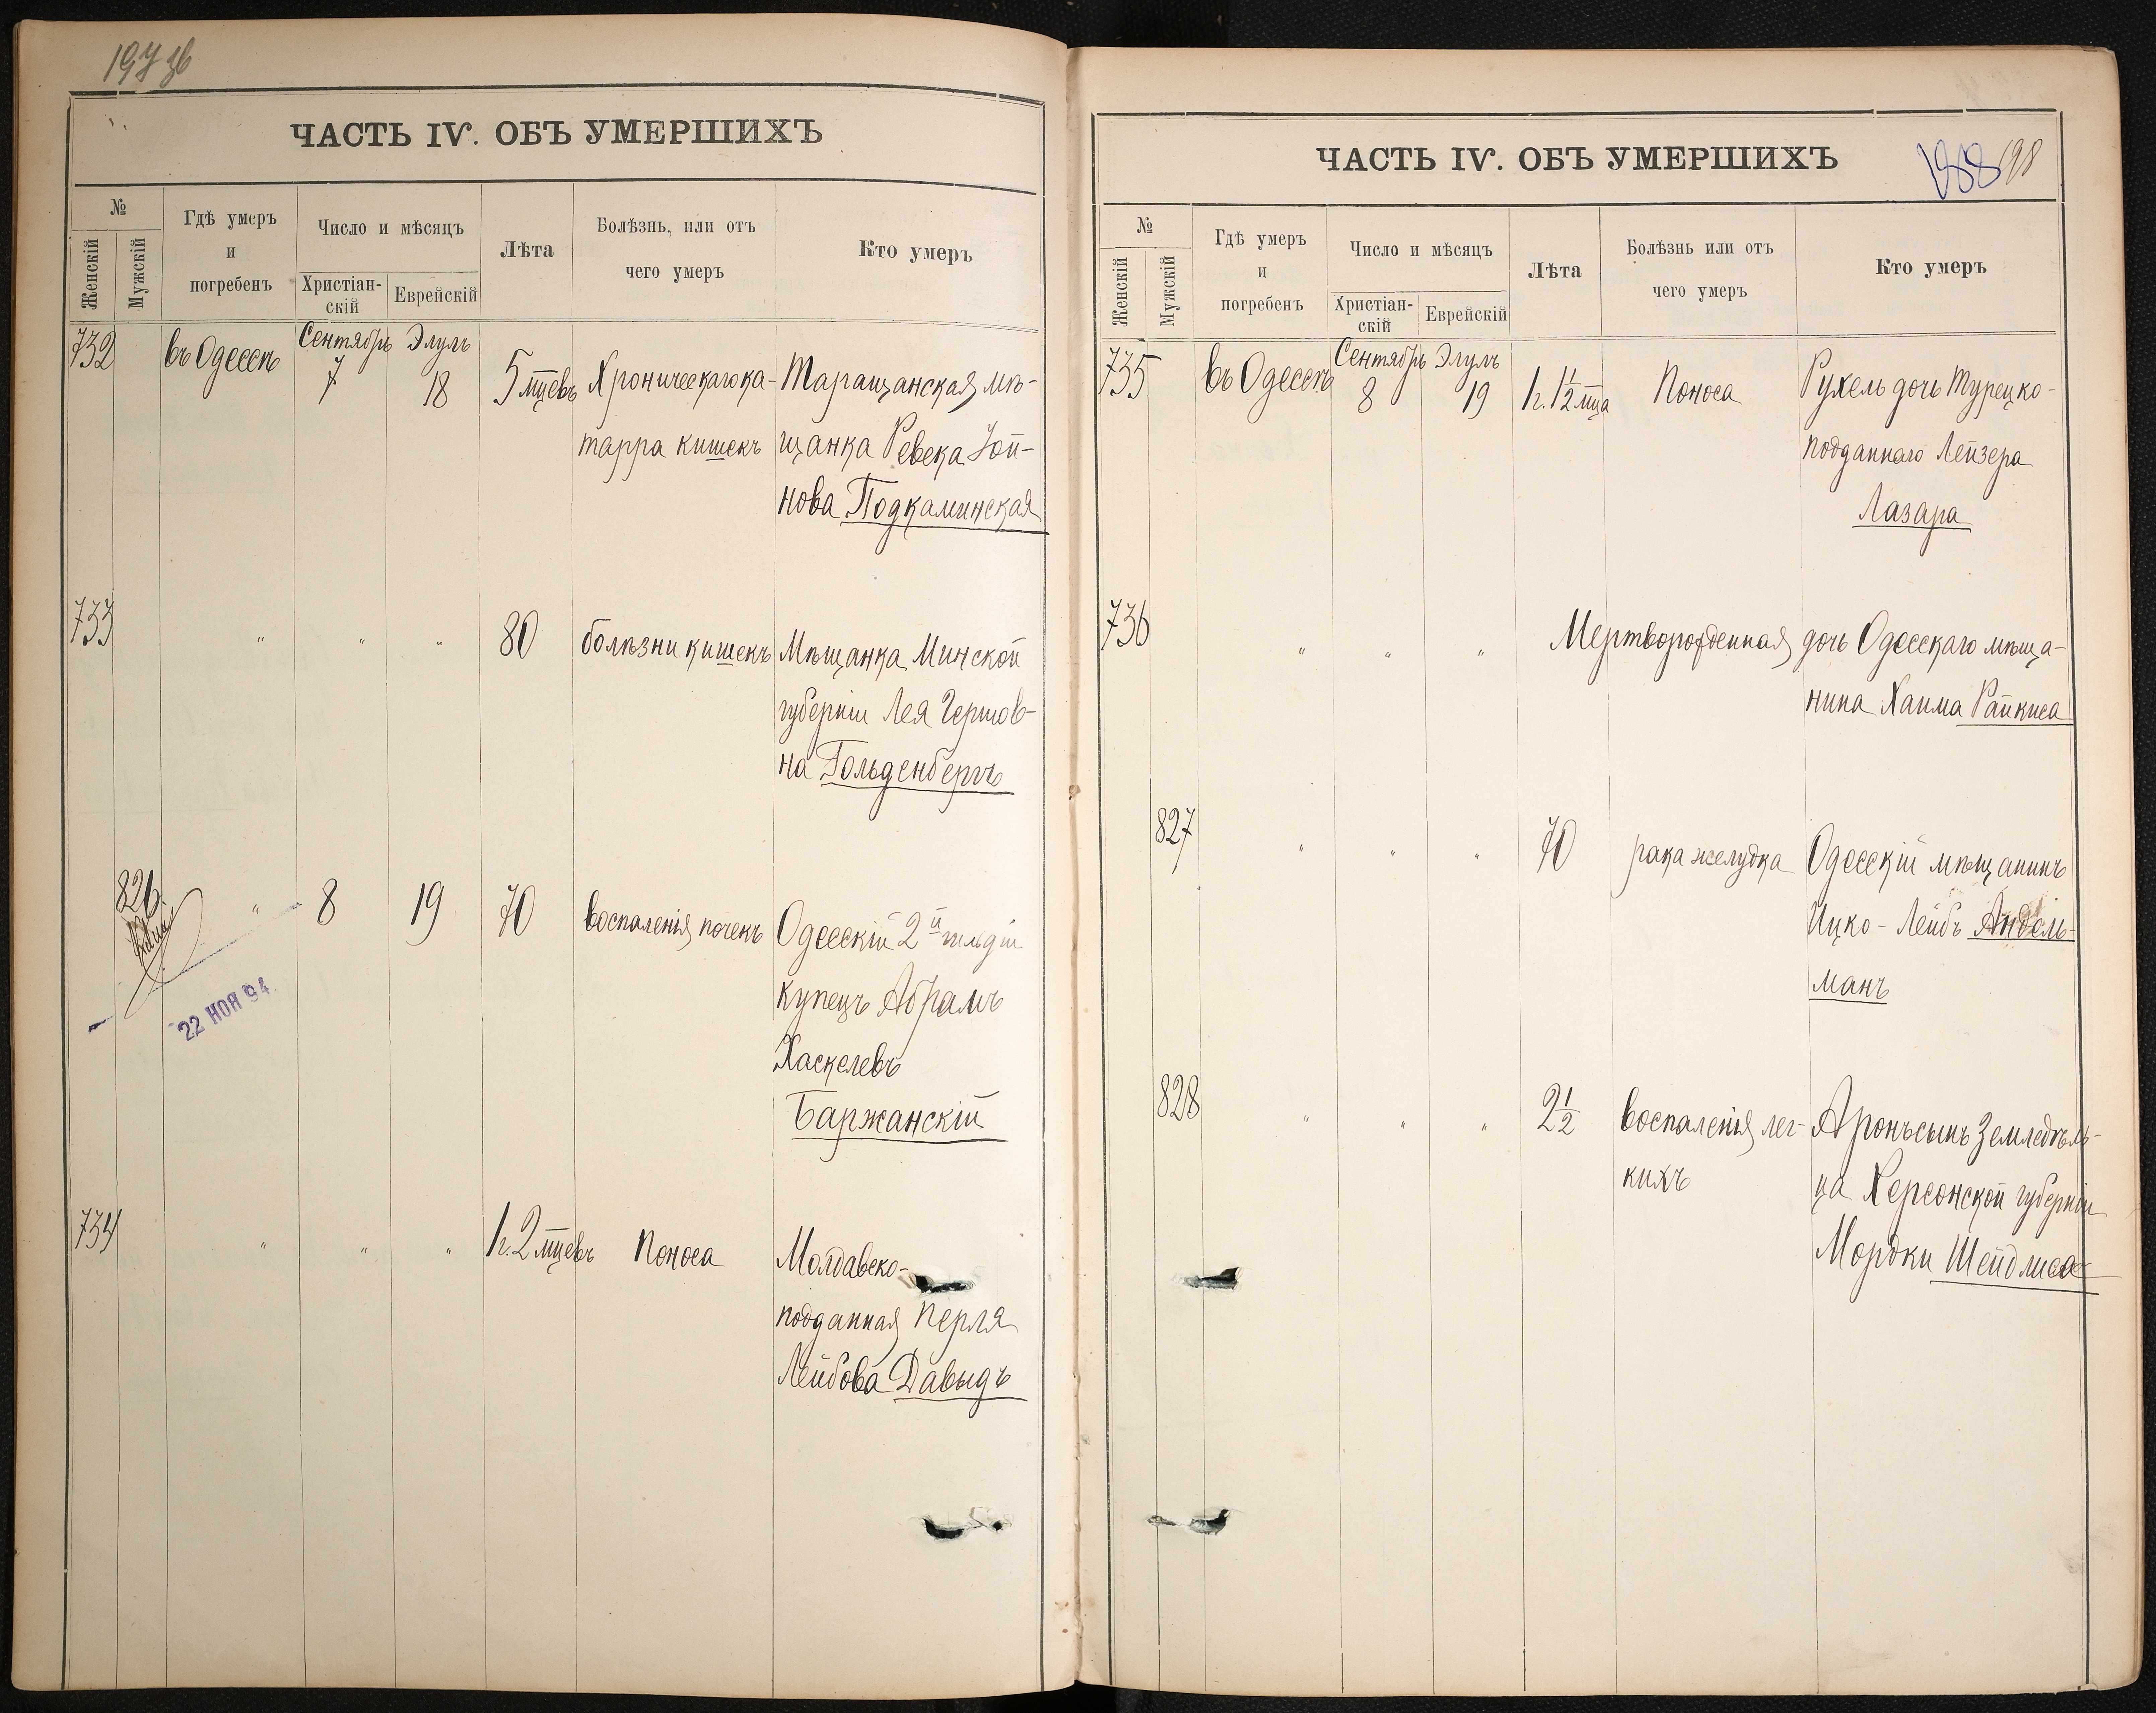 197 об
ЧАСТЬ IV. ОБЪ УМЕРШИХЪ
№
Женскій
Мужскій
Гдѣ умеръ
и
погребенъ
Число и мѣсяцъ
Христіан-
скій
Еврейскій
Лѣта
Болѣзнь, или отъ
чего умеръ
Кто умеръ
732 въ Одессѣ Сентябрь 7 Элулъ 18 5 мцевъ Хроническаго ка- Таращанская мѣ-
тарра кишекъ щанка Ревека Іой-
нова Подкаминская
733 " " " 80 болѣзни кишекъ Мѣщанка Минской
губерніи Лея Гершов-
на Гольденбергъ
826 " 8 19 70 воспаленія почекъ Одесскій 2й гильдіи
купецъ Абрамъ
Хаскелевъ
Баржанскій
22 НОЯ 94
734 " " " 1 г. 2 мцевъ Поноса Молдавско-
подданная Перля
Лейбова Давыдъ
198
ЧАСТЬ IV. ОБЪ УМЕРШИХЪ
№
Женскій
Мужскій
Гдѣ умеръ
и
погребенъ
Число и мѣсяцъ
Христіан-
скій
Еврейскій
Лѣта
Болѣзнь или отъ
чего умеръ
Кто умеръ
735 въ Одессѣ Сентябрь 8 Элулъ 19 1 г. 1 1/2 мца Поноса Рухель дочь Турецко-
подданнаго Лейзера
Лазара
736 " " " Мертворожденная дочь Одесскаго мѣща-
нина Хаима Райкиса
827 " " " 70 рака желудка Одесскій мѣщанинъ
Ицко-Лейбъ Андель-
манъ
828 " " " 2 1/2 воспаленія лег- Аронъ сынъ Земледѣль-
кихъ ца Херсонской губерніи
Мордки Шейдлиса